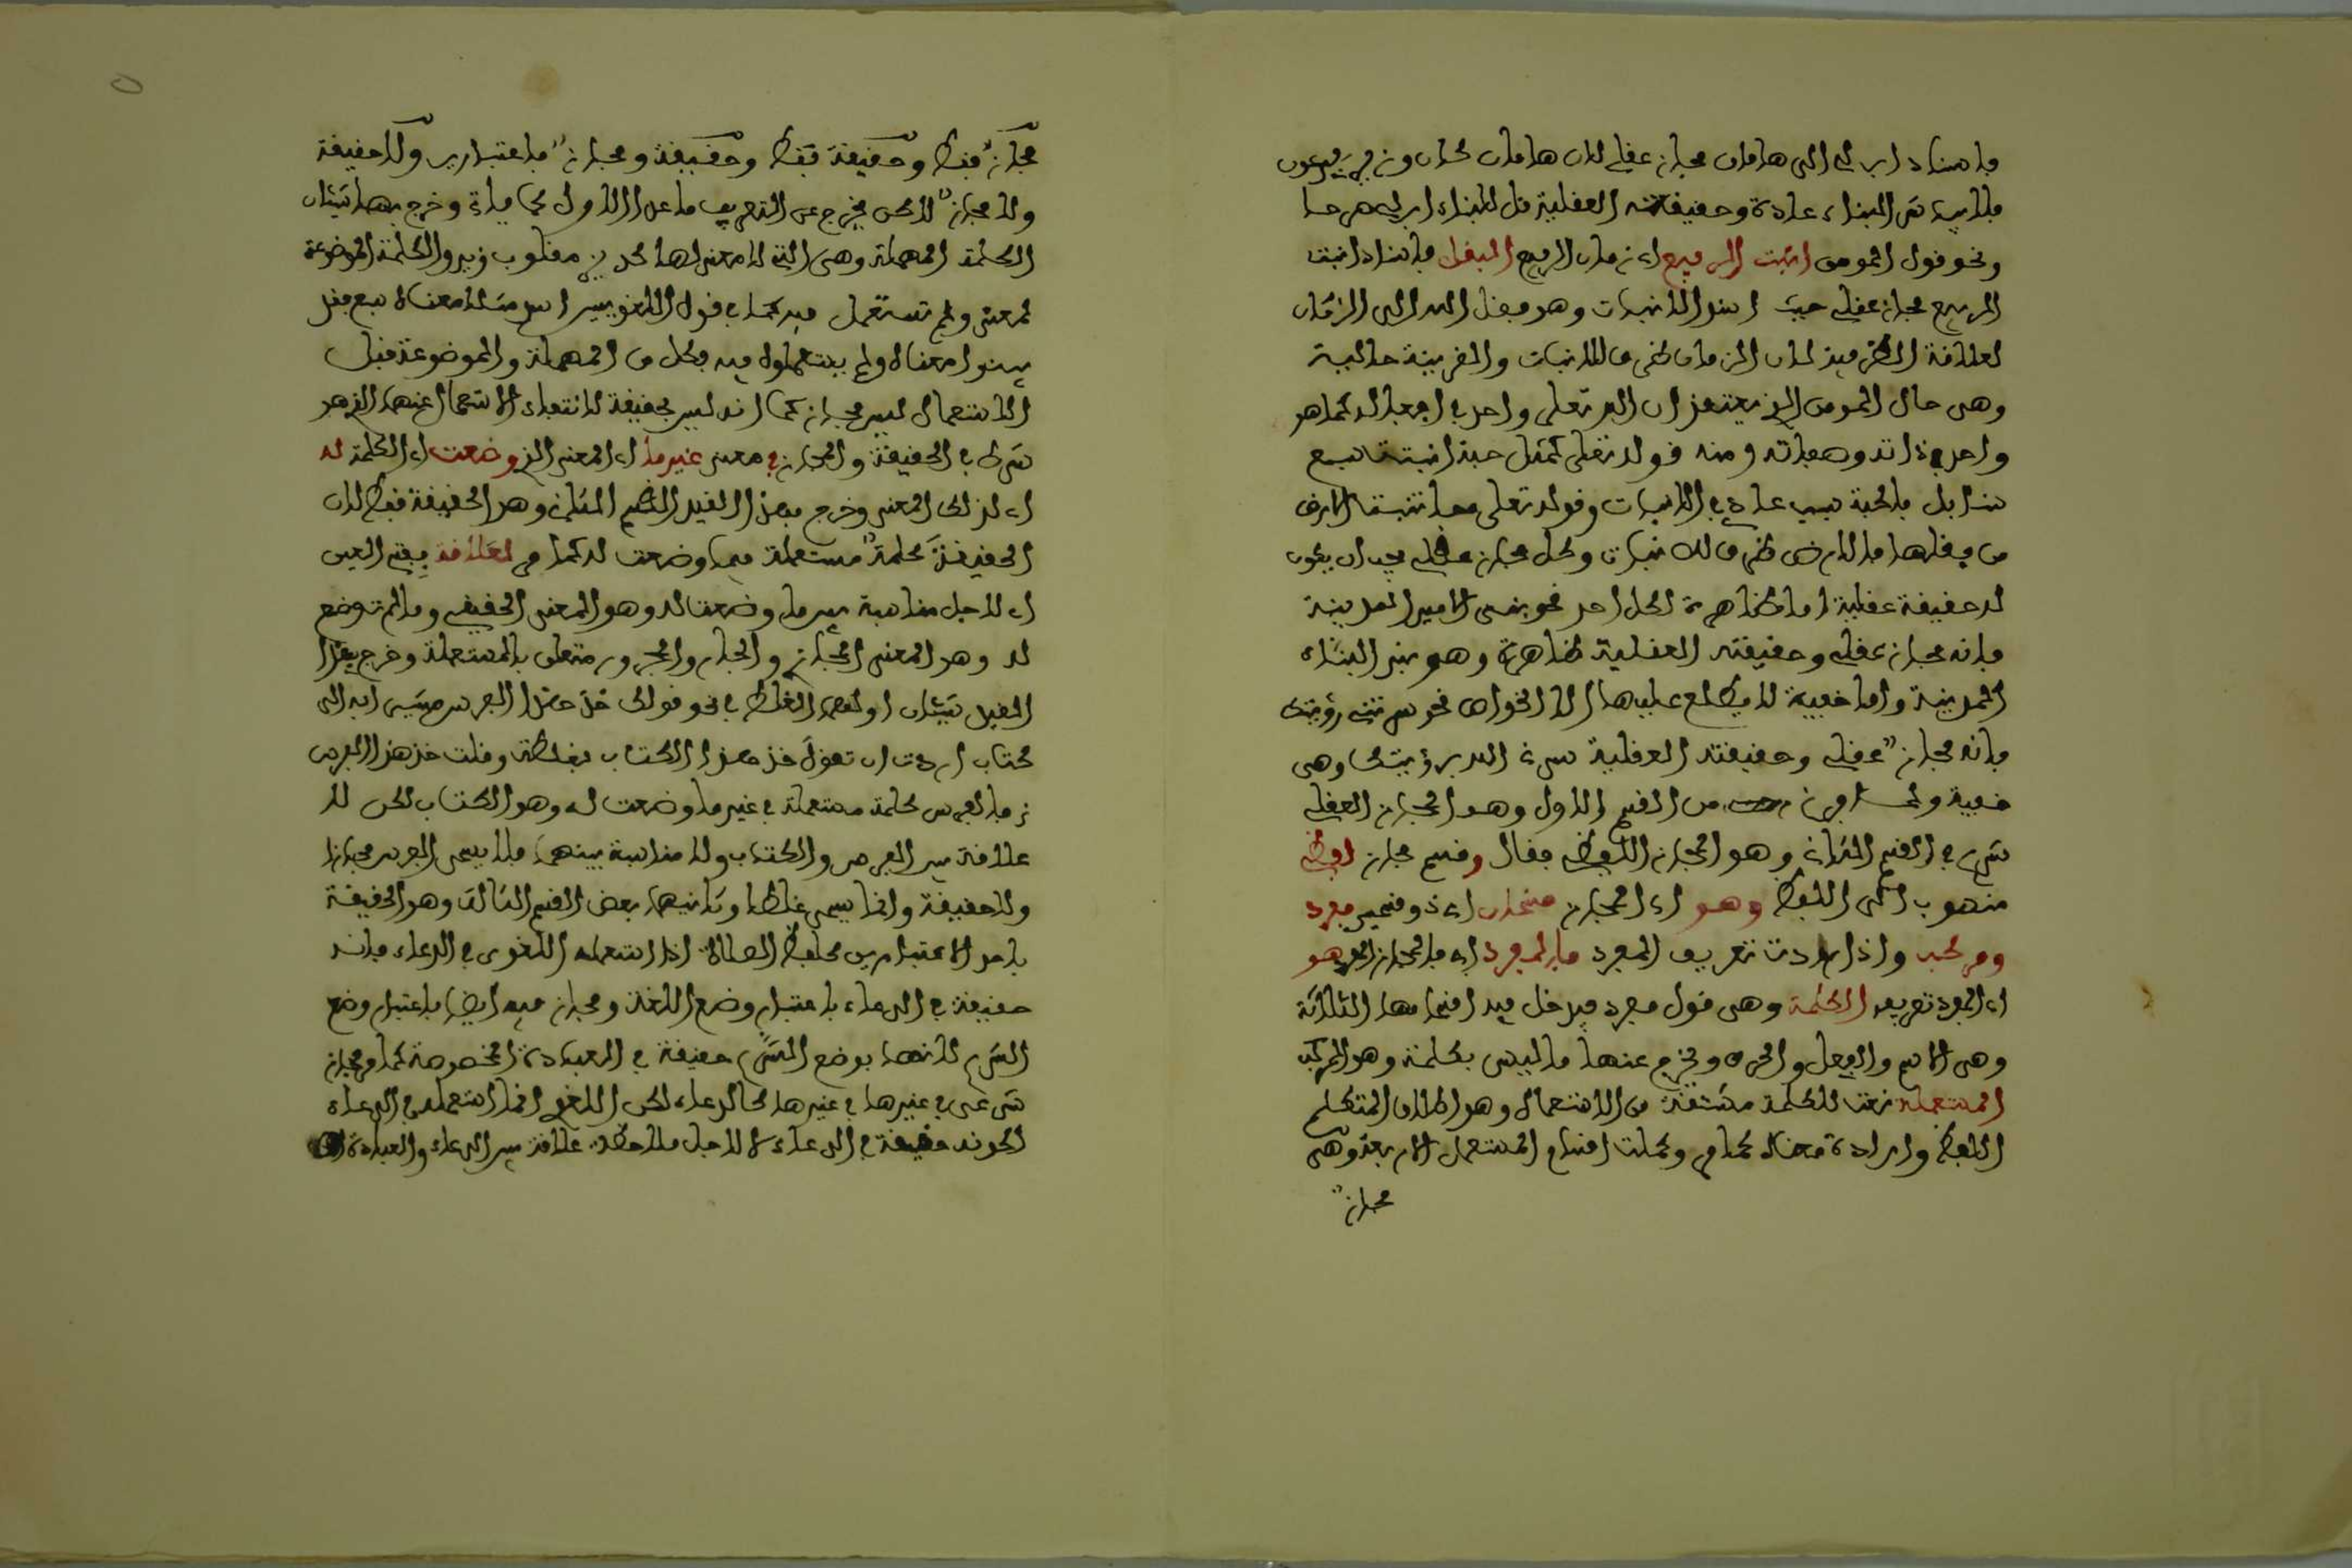 فاسناد ابن لي الى هامان مجاز عقلي لان هامان كان وزير فرعون
فلا يباشر البناء عادة وحقيقته العقلية قل للبناء ابن لي صرحا
ونحو قول المومن انبت الربيع اي زمان الربيع البقل فاسناد انبت
الربيع مجاز عقلي حيث اسند الانبات وهو فعل الله الى الزمان
لعلاقة الظرفية لان الزمان ظرف للانبات والقرينة حالية
وهي حال المومن الذي يعتقد ان الله تعلى واحد في افعاله كما هو
واحد في ذاته وصفاته ومنه قوله تعلى كمثل حبة انبتت سبع
سنابل فالحبة سبب عادي في الانبات وقوله تعلى مما تنبت الارض
من بقلها فالارض ظرف للانبات وكل مجاز عقلي يجب ان يكون
له حقيقة عقلية اما ظاهرة لكل احد نحو بنى الامير المدينة
فانه مجاز عقلي وحقيقته العقلية ظاهرة وهو بنى البناء
المدينة واما خفية لا يطلع عليها الا الخواص نحو سرتني رؤيتك
فانه مجاز عقلي وحقيقته العقلية سرني الله برؤيتك وهي
خفية ولما فرغ من القسم الاول وهو المجاز العقلي
شرع في القسم الثاني وهو المجاز اللفظي فقال وقسم مجاز لفظي
منسوب الى اللفظ وهو اي المجاز قسمان اي ذو قسمين مفرد
ومركب واذا اردت تعريف المفرد فالمفرد اي فالمجاز المفرد هو
اي المفرد تعريفه الكلمة وهي قول مفرد فيدخل فيه اقسامها الثلاثة
وهي الاسم والفعل والحرف ويخرج عنها ما ليس بكلمة وهو المركب
المستعملة نعت للكلمة مشتقة من الاستعمال وهو اطلاق المتكلم
اللفظ وارادة معناه كما مر وكانت اقسام المستعمل الاربعة وهي
مجاز
مجاز فقط وحقيقة فقط وحقيقة ومجاز باعتبارين ولا حقيقة
ولا مجاز لاكن يخرج عن التعريف ما عدا الاول كما ياتي وخرج بها شيئان
الكلمة المهملة وهي التي لا معنى لها كديز مقلوب زيد والكلمة الموضوعة
لمعنى ولم تستعمل فيه كما في قول اللغويين اسم مثلا معناه سبع فقد
بينوا معناه ولم يستعملوه فيه فكل من المهملة والموضوعة قبل
الاستعمال ليس بمجاز كما انه ليس بحقيقة لانتفاء الاستعمال عنهما الذي هو
شرط في الحقيقة والمجاز في معنى غير ما اي المعنى الذي وضعت اي الكلمة له
اي لذلك المعنى وخرج بهذا القيد القسم الثاني وهو الحقيقة فقط لان
الحقيقة كلمة مستعملة فيما وضعت له كما مر لعلاقة بفتح العين
اي لاجل مناسبة بين ما وضعت له وهو المعنى الحقيقي وما لم توضع
له وهو المعنى المجازي والجار والمجرور متعلق بالمستعملة وخرج بهذا
القيد شيئان اولهما الغلط في نحو قولك خذ هذا الفرس مشيرا به الى
كتاب اردت ان تقول خذ هذا الكتاب فغلطت وقلت خذ هذا الفرس
فالفرس كلمة مستعملة في غير ما وضعت له وهو الكتاب لكن لا
علاقة بين الفرس والكتاب ولا مناسبة بينهما فلا يسمى الفرس مجازا
ولا حقيقة وانما يسمى غلطا وثانيهما بعض القسم الثالث وهو الحقيقة
باحد الاعتبارين كلفظ الصلاة اذا استعمله اللغوي في الدعاء فانه
حقيقة في الدعاء باعتبار وضع اللغة ومجاز فيه ايضا باعتبار وضع
الشرع لانها بوضع الشرع حقيقة في العبادة المخصوصة كما مر مجاز
شرعي في غيرها كالدعاء لكن اللغوي انما استعمله في الدعاء
لكونه حقيقة في الدعاء لا لاجل ملاحظة علاقة بين الدعاء والعبادة